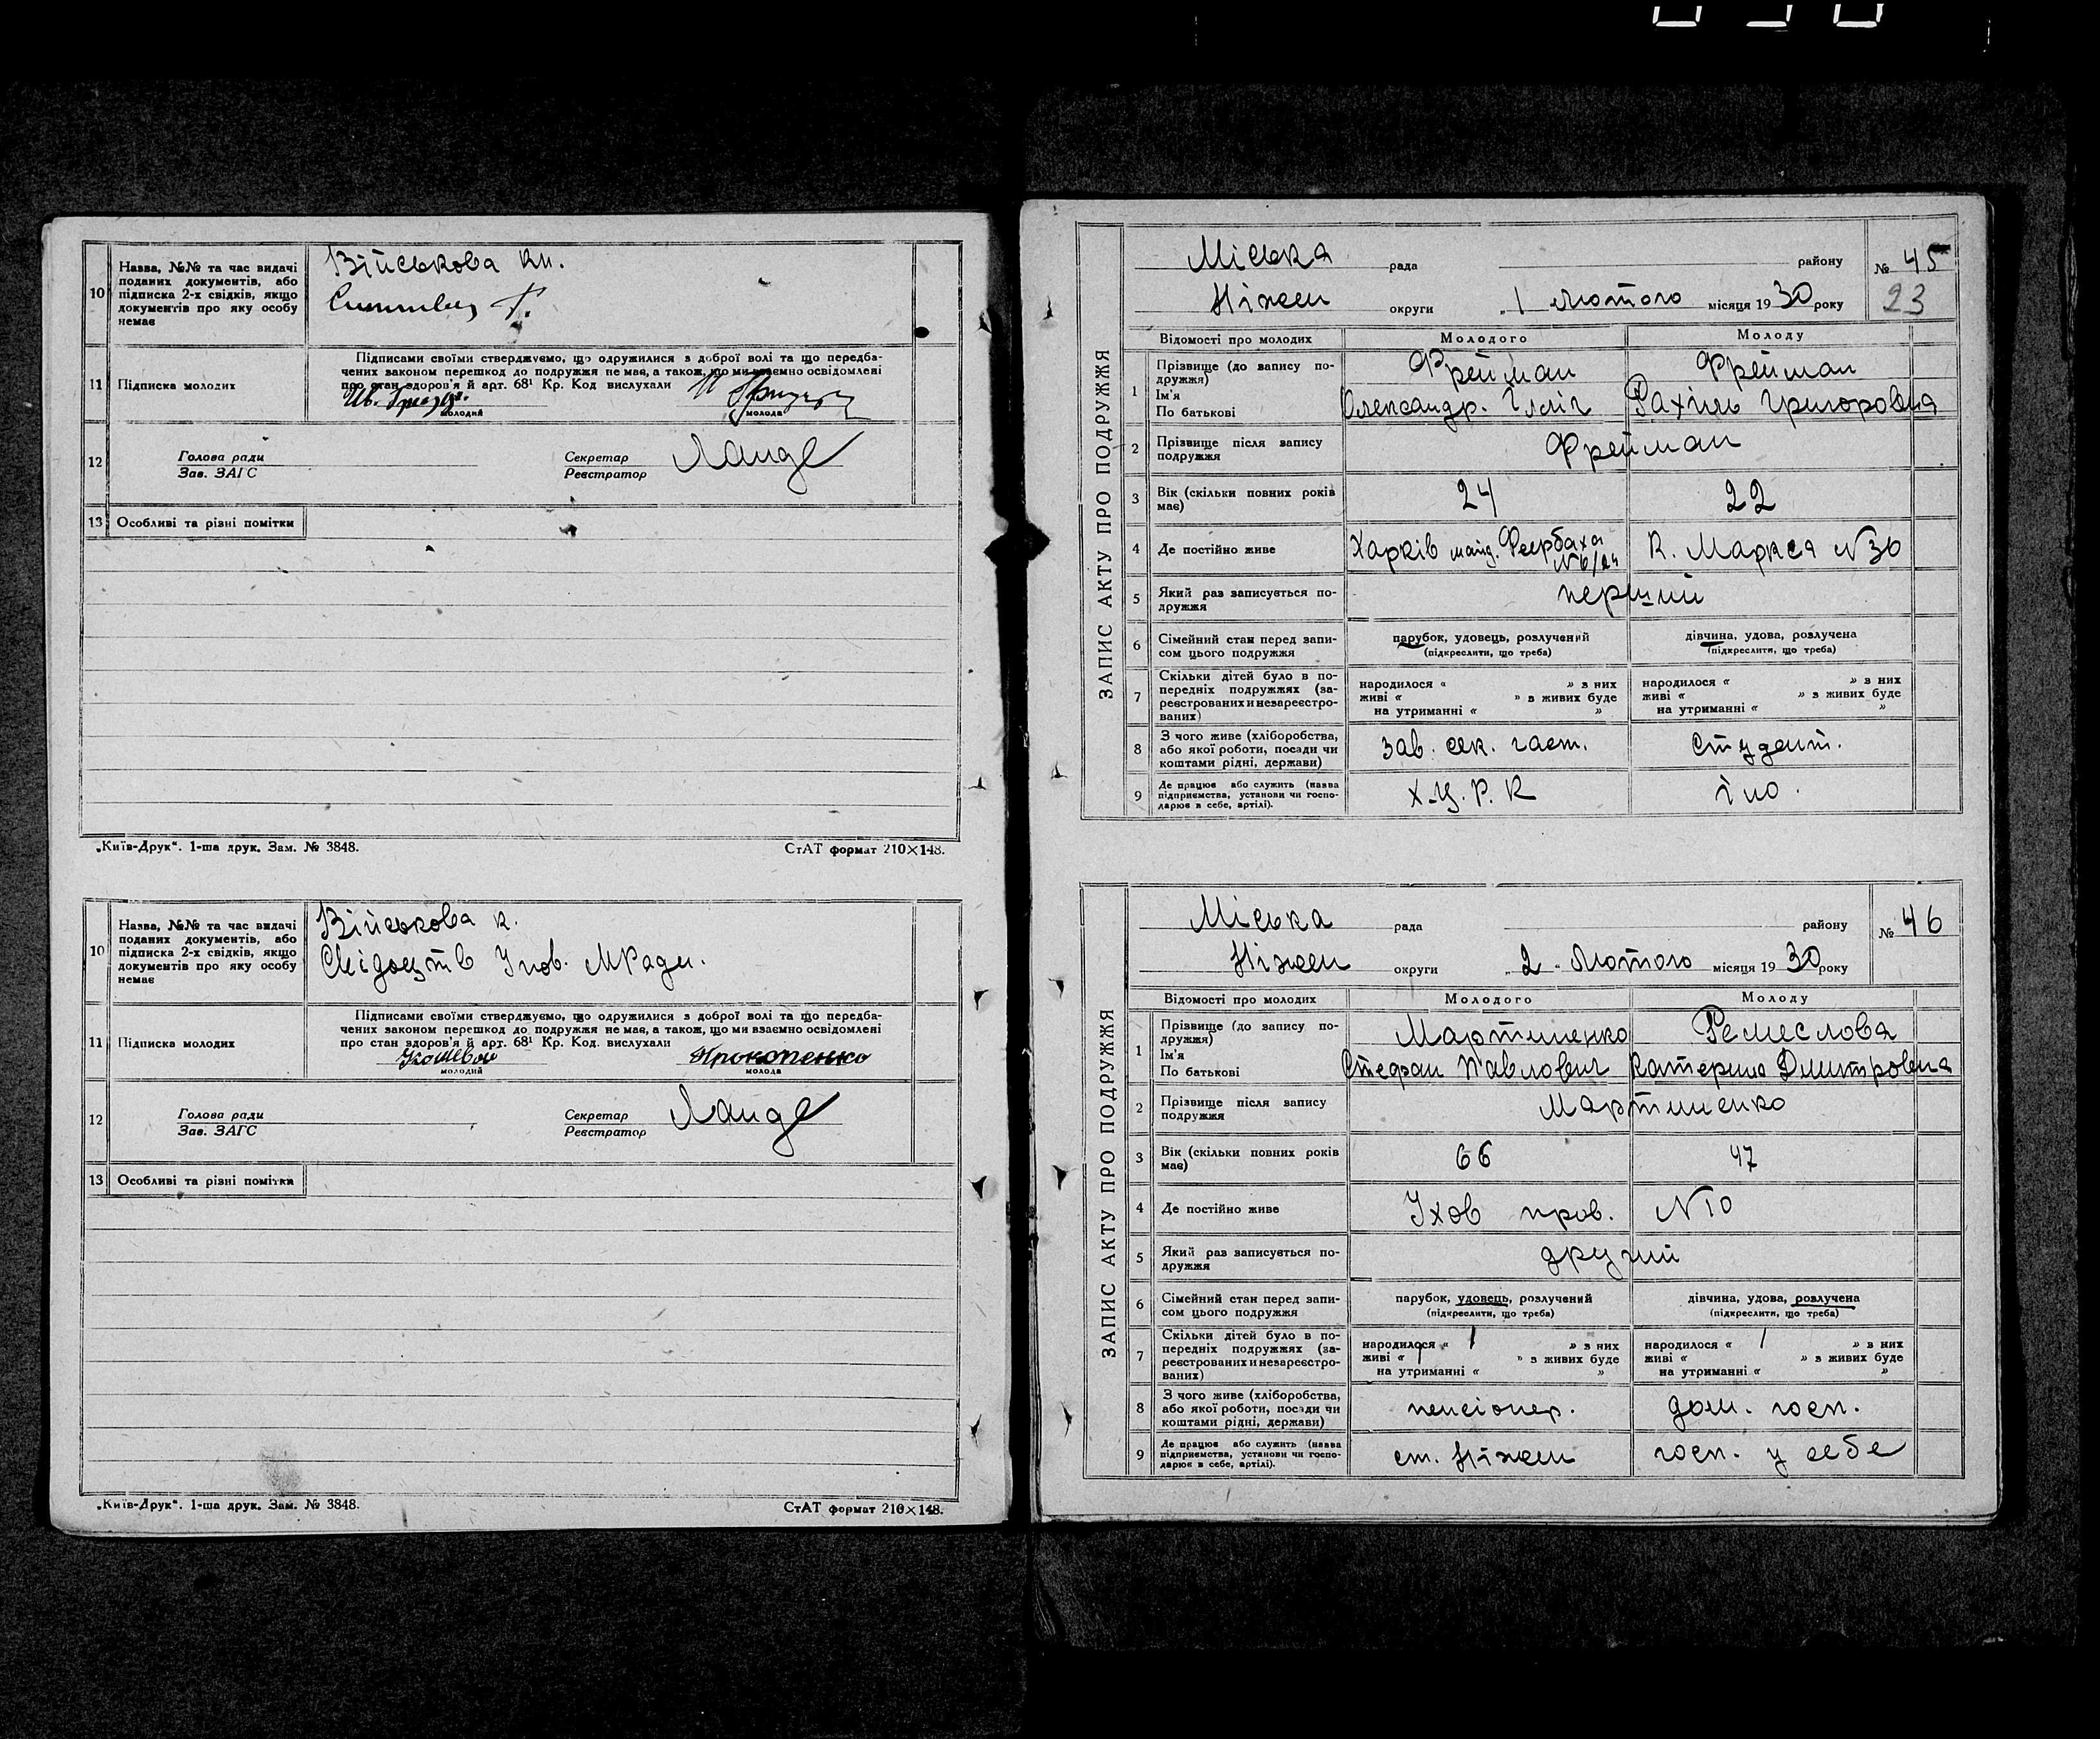 10
Назва, №№ та час видачі
поданих документів, або
підписка 2-х свідків, якщо
документів про яку особу
немає
Військова кн.
11
Підписка молодих
Підписами своїми стверджуємо, що одружилися з доброї волі та що передба-
чених законом перешкод до подружжя не має, а також, що ми взаємно освідомлені
про стан здоров'я й арт. 68¹ Кр. Код вислухали
Ив.
молодий
молода
12
Голова ради
Зав. ЗАГС
Секретар
Реєстратор
Ланде
13
Особливі та різні помітки
„Київ-Друк“. 1-ша друк. Зам. № 3848.
СтАТ формат 210×148.
10
Назва, №№ та час видачі
поданих документів, або
підписка 2-х свідків, якщо
документів про яку особу
немає
Військова к.
Свідоцтв Упов. МРади.
11
Підписка молодих
Підписами своїми стверджуємо, що одружилися з доброї волі та що передба-
чених законом перешкод до подружжя не має, а також, що ми взаємно освідомлені
про стан здоров'я й арт. 68¹ Кр. Код. вислухали
Кошевой
Прокопенко
молодий
молода
12
Голова ради
Зав. ЗАГС
Секретар
Реєстратор
Ланде
13
Особливі та різні помітки
„Київ-Друк“. 1-ша друк. Зам. № 3848.
СтАТ формат 210×148.
ЗАПИС АКТУ ПРО ПОДРУЖЖЯ
Міська рада району
№ 45
Ніжен округи „1 лютого місяця 1930 року
23
Відомості про молодих
Молодого
Молоду
1
Прізвище (до запису по-
дружжя)
Ім'я
По батькові
Фрейман
Олександр. Ілліч
Фрейман
Рахіль Григоровна
2
Прізвище після запису
подружжя
Фрейман
3
Вік (скільки повних років
має)
24
22
4
Де постійно живе
Харків майд. Феєрбаха
№ 6/24
К. Маркса №30
5
Який раз записується по-
дружжя
перший
6
Сімейний стан перед запи-
сом цього подружжя
парубок, удовець, розлучений
(підкреслити, що треба)
дівчина, удова, розлучена
(підкреслити, що треба)
7
Скільки дітей було в по-
передніх подружжях (за-
реєстрованих и незареєстро-
ваних)
народилося “ ” з них
живі “ ” з живих буде
на утриманні “ ”
народилося “ ” з них
живі “ ” з живих буде
на утриманні “ ”
8
З чого живе (хліборобства,
або якої роботи, посади чи
коштами рідні, держави)
зав. сек. гаст.
студент.
9
Де працює або служить (назва
підприємства, установи чи госпо-
дарює в себе, артілі).
Х.Ц.Р.К
Іно.
ЗАПИС АКТУ ПРО ПОДРУЖЖЯ
Міська рада району
№ 46
Ніжен округи „2“ Лютого місяця 1930 року
Відомості про молодих
Молодого
Молоду
1
Прізвище (до запису по-
дружжя)
Ім'я
По батькові
Мартиненко
Стефан Павлович
Ремеслова
Катерина Дмитровна
2
Прізвище після запису
подружжя
Мартиненко
3
Вік (скільки повних років
має)
66
47
4
Де постійно живе
Ухов пров. №10
5
Який раз записується по-
дружжя
другий
6
Сімейний стан перед запи-
сом цього подружжя
парубок, удовець, розлучений
(підкреслити, що треба)
дівчина, удова, розлучена
(підкреслити, що треба)
7
Скільки дітей було в по-
передніх подружжях (за-
реєстрованих и незареєстро-
ваних)
народилося “ 1 ” з них
живі “ 1 ” з живих буде
на утриманні “ ”
народилося “ 1 ” з них
живі “ ” з живих буде
на утриманні “ ”
8
З чого живе (хліборобства,
або якої роботи, посади чи
коштами рідні, держави)
пенсіонер.
дом. госп.
9
Де працює або служить (назва
підприємства, установи чи госпо-
дарює в себе, артілі).
ст. Ніжен
госп. у себе